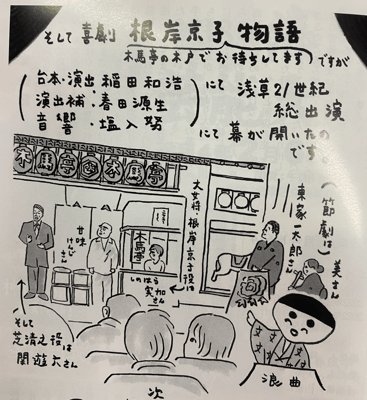 そして喜劇 根岸京子物語
木馬亭の木戸でお待ちしてます ですが
台本・演出 稲田和浩
演出補・春田源生
音響・塩入努
にて 浅草21世紀
総出演
にて幕が開いたの
です。
(節劇は)
東家一太郎さん
美さん
大女将・根岸京子役は
しのはら実加さん
木馬亭
木馬亭
甘味けんじさん
そして
芝清之役は
関遊六さん
浪曲
次